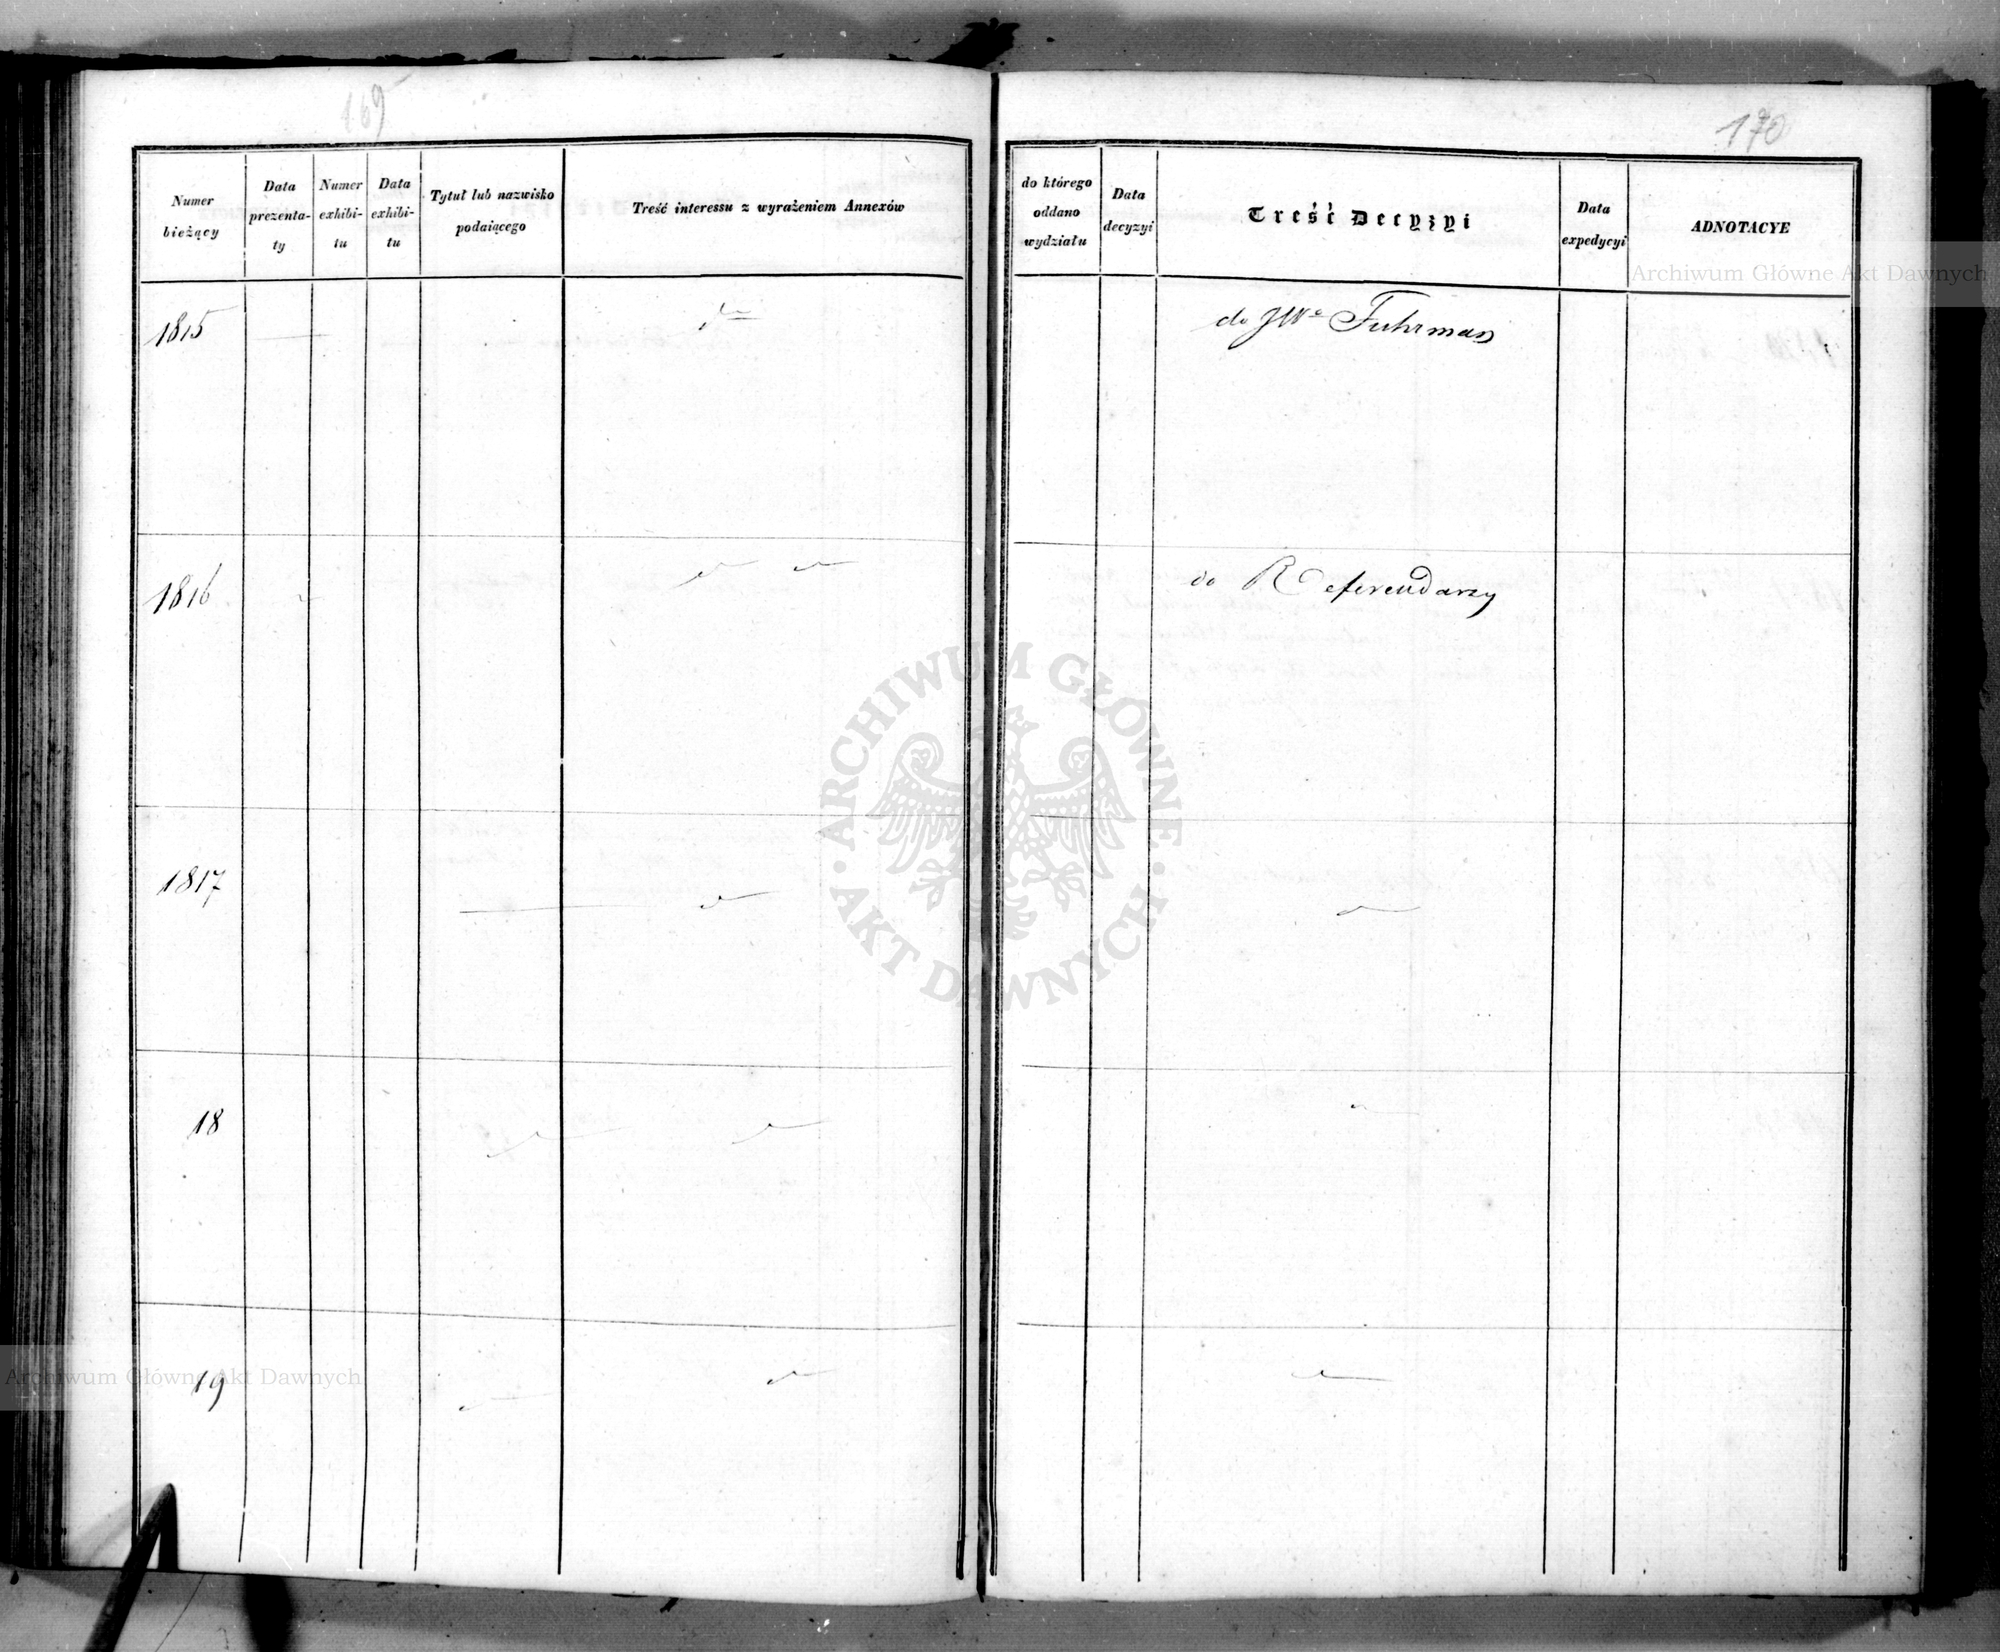 169
Numer
bieżący
Data
prezenta-
ty
Numer
exhibi-
tu
Data
exhibi-
tu
Tytuł lub nazwisko
podaiącego
Treść interessu z wyrażeniem Annexów
1815
1816
1817
18
19
170
do którego
oddano
wydziału
Data
decyzyi
Treść Decyzyi
Data
expedycyi
ADNOTACYE
do JWo Fuhrman
do Referendarzy
Archiwum Główne Akt Dawnych
ARCHIWUM GŁÓWNE
AKT DAWNYCH
Archiwum Główne Akt Dawnych